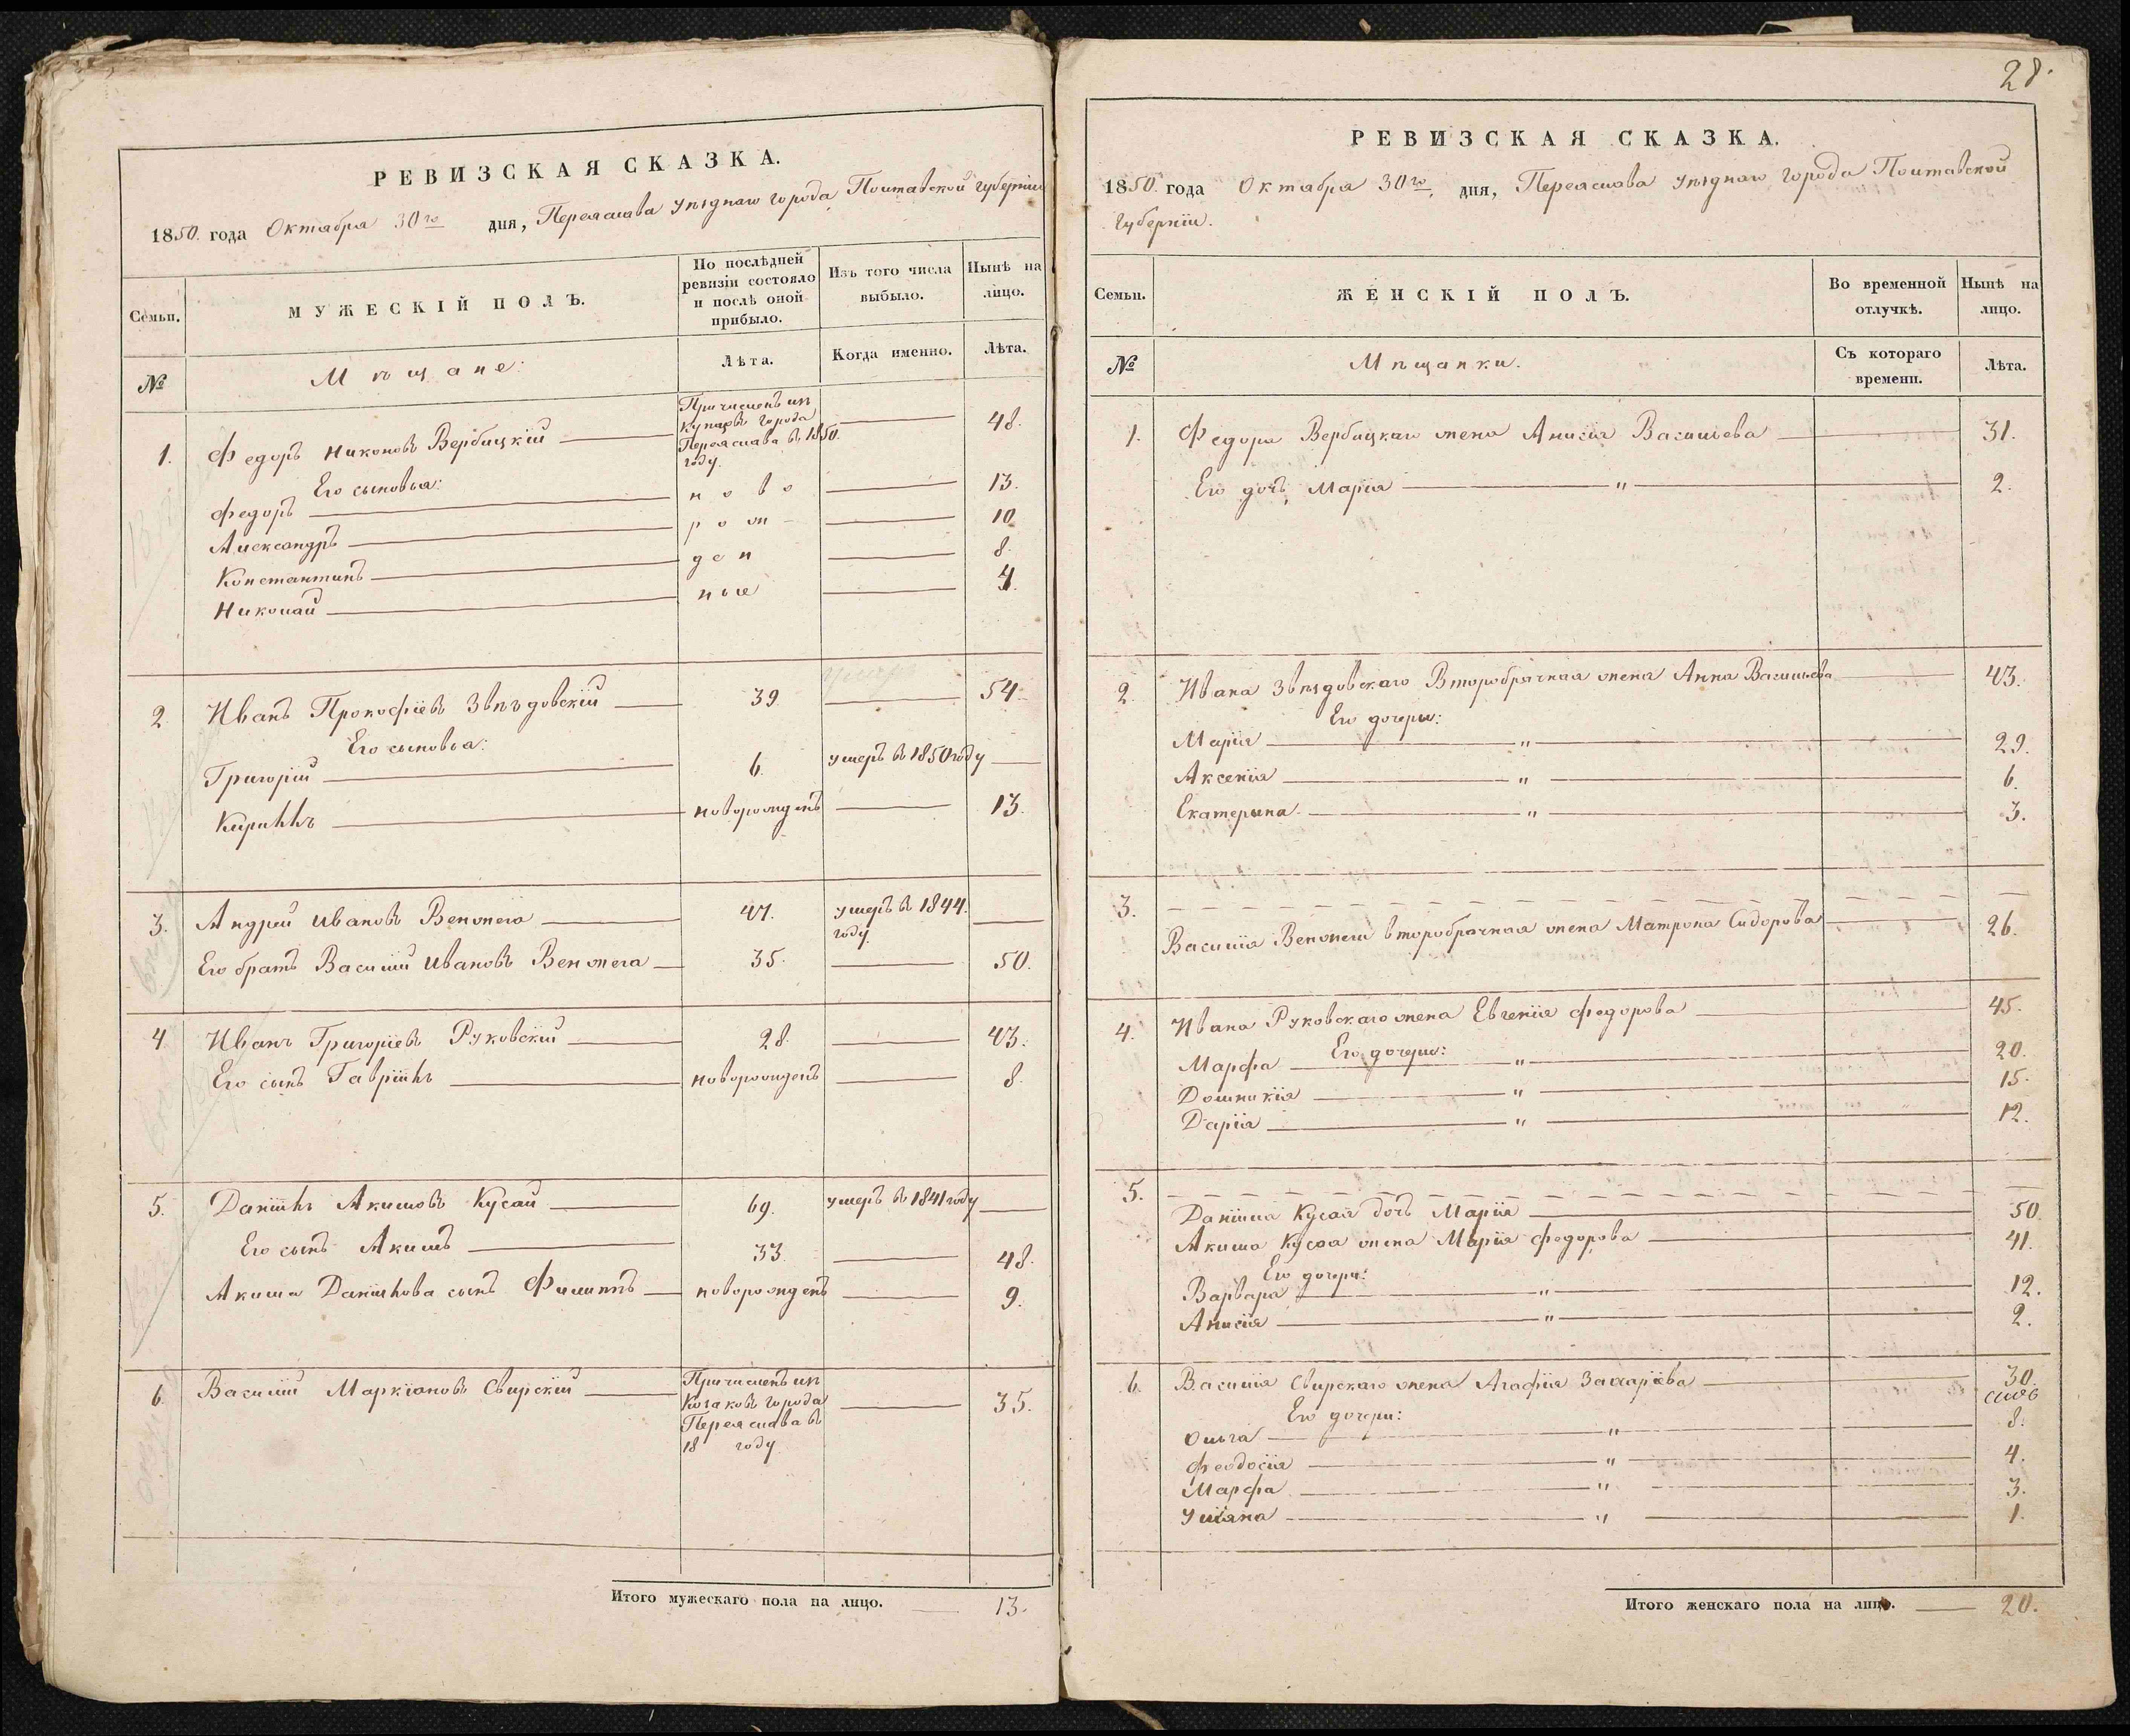 РЕВИЗСКАЯ СКАЗКА.
1850. года Октября 30го дня, Переяслава уѣзднаго города Полтавской губерніи
Семьи.
МУЖЕСКІЙ ПОЛЪ.
По послѣдней ревизіи состояло и послѣ оной прибыло.
Изъ того числа выбыло.
Нынѣ на лицо.
№
Мѣщане:
Лѣта.
Когда именно.
Лѣта.
1. Федоръ Никоновъ Вербицкій Причисленъ изъ купцовъ города Переяслава въ 1850. году. 48.
Его сыновья:
Федоръ ново 13.
Александръ рож- 10
Константинъ ден 8.
Николай ные 4.
2. Иванъ Прокофіевъ Звѣздовскій 39. 54
Его сыновья:
Григорій 6. умеръ въ 1850 году
Кириллъ новорожденъ 13.
3. Андрей Ивановъ Венжега 47. умеръ въ 1844. году.
Его братъ Василій Ивановъ Венжега 35. 50.
4 Иванъ Григоріевъ Руковскій 28. 43.
Его сынъ Гавріилъ новорожденъ 8.
5. Даніилъ Акимовъ Кусай 69. умеръ въ 1841 году
Его сынъ Акимъ 33. 48.
Акима Данилова сынъ Филиппъ новорожденъ 9.
6. Василій Маркіановъ Свирскій Причисленъ изъ Козаковъ города Переяслава въ 18 году 35.
Итого мужескаго пола на лицо. 13.
28.
РЕВИЗСКАЯ СКАЗКА.
1850. года Октября 30го дня, Переяслава уѣзднаго города Полтавской
губерніи.
Семьи.
ЖЕНСКІЙ ПОЛЪ.
Во временной отлучкѣ.
Нынѣ на лицо.
№
Мѣщанки.
Съ котораго времени.
Лѣта.
1. Федора Вербицкаго жена Анисія Васильева 31.
Его дочь Марія " 2.
2. Ивана Звѣздовскаго Второбрачная жена Анна Васильева 43.
Его дочери:
Марія " 29.
Аксенія " 6.
Екатерина " 3.
3.
Василія Венжеги второбрачная жена Матрона Сидорова 26.
4. Ивана Руковскаго жена Евгенія Федорова 45.
Его дочери:
Марфа " 20.
Домникія " 15.
Дарія " 12.
5.
Даніила Кусая дочь Марія 50.
Акима Кусая жена Марія Федорова 41.
Его дочери:
Варвара " 12.
Анисія " 2.
6. Василія Свирскаго жена Агафія Захаріева 30.
Его дочери:
Ольга " 8.
Феодосія " 4.
Марфа " 3.
Уліяна " 1.
Итого женскаго пола на лицо. 20.